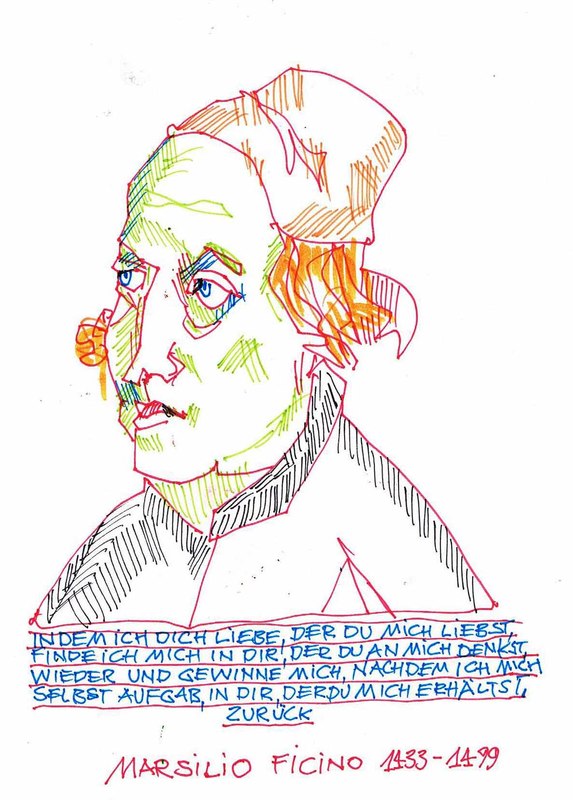 INDEM ICH DICH LIEBE, DER DU MICH LIEBST,
FINDE ICH MICH IN DIR, DER DU AN MICH DENKST,
WIEDER UND GEWINNE MICH, NACHDEM ICH MICH
SELBST AUFGAB, IN DIR, DER DU MICH ERHÄLTST,
ZURÜCK
MARSILIO FICINO 1433-1499